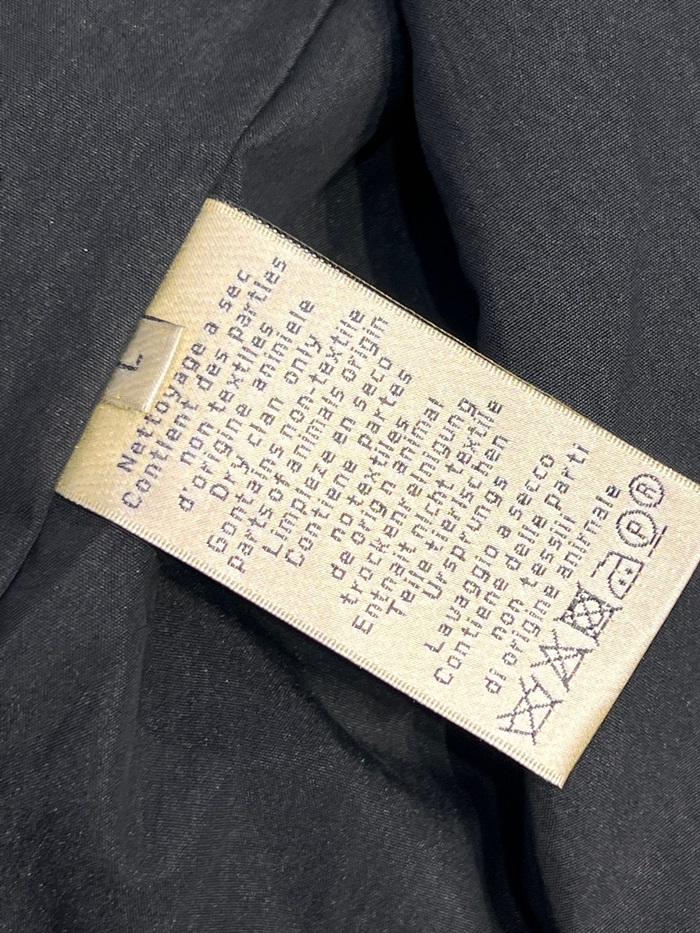 L
Nettoyage a sec
Contient des parties
non textiles
d'origine aniniele
Dry clan only
Gontains non-textile
parts of animais origin
Limpieze en seco
Contiene partes
no textiles
de orign animal
trockenreinigung
Entnait nicht textile
Teile tierischen
Ursprungs
Lavaggio a secco
Contiene delle parti
non tessjli
di origine animale
P R